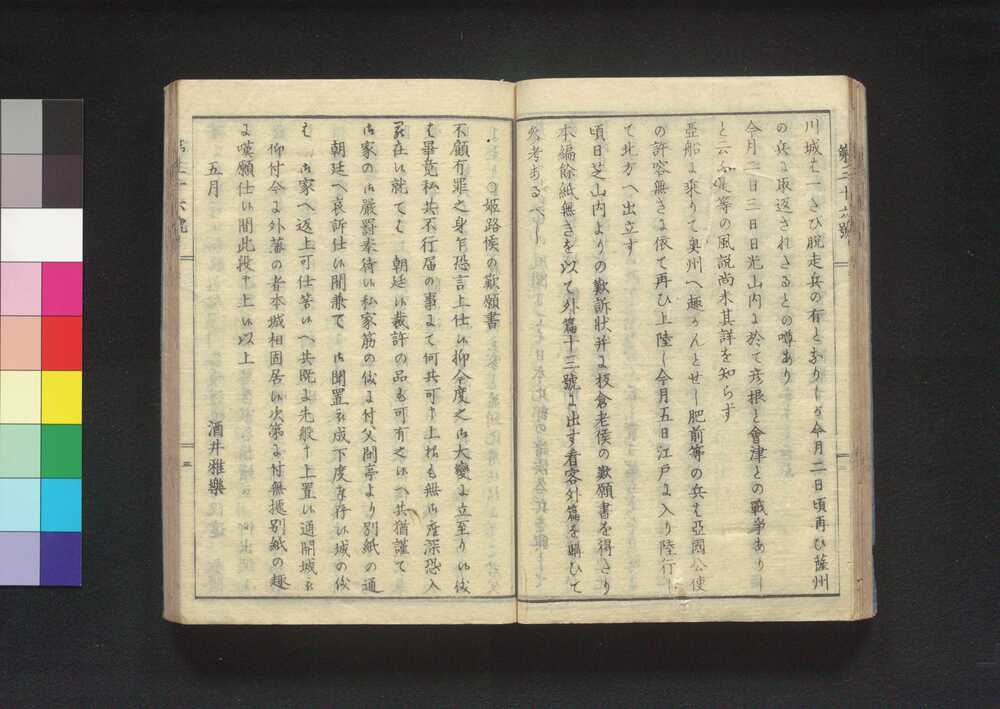 第三十六號
川城も一さひ脱走兵の有となりしが今月二日頃再ひ薩州
の兵に取返されたるとの噂あり
今月二日三日日光山内に於て彦根と會津との戰爭ありし
と云 等の風説尚未其詳を知らず
亞船に乘りて奥州へ趣かんとせし肥前等の兵も亞國公使
の許容無きに依て再ひ上陸し今月五日江戸に入り陸行し
て北方へ出立す
頃日芝山内よりの歎訴狀并に板倉老侯の歎願書を得たり
本編餘紙無きを以て外篇十三號に出す看客外篇を購ひて
參考あるべし
○姫路侯の歎願書
不顧有罪之身乍恐言上仕候抑今度之御大變に立至り候儀
も畢竟私共不行屆の事にて何共可申上樣も無御座深恐入
罷在候就ても 朝廷御裁許の品も可有之候へ共猶謹て
御家の御嚴罸奉待候私家筋の儀に付父閑亭より別紙の通
朝廷へ哀訴仕候間兼て 御聞置被成下度奉存候城の儀
も 御家へ返上可仕筈候へ共既に先般申上置候通開城被
仰付今に外藩の者本城相固居候次第に付無據別紙の趣
に嘆願仕候間此段申上候以上
五月 酒井雅樂
三